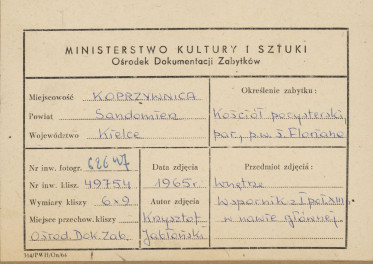 MINISTERSTWO KULTURY I SZTUKI
Ośrodek Dokumentacji Zabytków
Miejscowość KOPRZYWNICA
Powiat Sandomierz
Województwo Kielce
Określenie zabytku:
Kościół pocysterski,
par., p.w. ś. Floriana
Nr inw. fotogr. 68647
Nr inw. klisz. 49754
Wymiary kliszy 6x9
Miejsce przechow. kliszy
Ośrod. Dok. Zab.
Data zdjęcia
1965 r.
Autor zdjęcia
Krzysztof
Jabłoński
Przedmiot zdjęcia:
Wnętrze
Wspornik z I poł. XIII w.
w nawie głównej